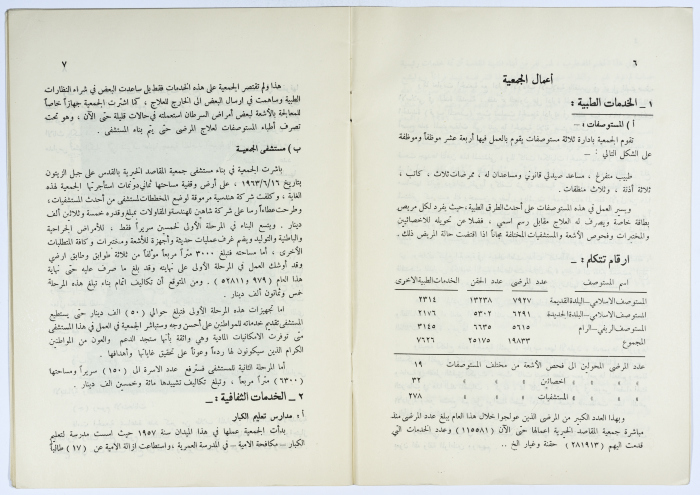 ٦
أعمال الجمعية
١ ـ الخدمات الطبية :
أ ) المستوصفات : ـ
تقوم الجمعية بادارة ثلاثة مستوصفات يقوم بالعمل فيها أربعة عشر موظفاً وموظفة
على الشكل التالي : ـ
طبيب متفرغ ، مساعد صيدلي قانوني ومساعدان له ، ممرضات ثلاث ، كاتب ،
ثلاثة أذنة ، وثلاث منظفات .
ويسير العمل في هذه المستوصفات على أحدث الطرق الطبية ، حيث يفرد لكل مريض
بطاقة خاصة ويصرف له العلاج مقابل رسم اسمي ، فضلا عن تحويله للاخصائيين
والمختبرات وفحوص الأشعة والمستشفيات المختلفة مجاناً اذا اقتضت حالة المريض ذلك .
ارقام تتكلم : ـ
اسم المستوصف عدد المرضى عدد الحقن الخدمات الطبية الاخرى
المستوصف الاسلامي ـ البلدة القديمة ٧٩٢٧ ١٣٢٣٨ ٢٣١٤
المستوصف الاسلامي ـ البلدة الجديدة ٦٢٩١ ٥٣٠٢ ٢١٧٦
المستوصف الريفي ـ الرام ٥٦١٥ ٦٦٣٥ ٣١٤٥
المجموع ١٩٨٣٣ ٢٥١٧٥ ٧٦٢٦
عدد المرضى المحولين الى فحص الأشعة من مختلف المستوصفات ١٩
» » » » اخصائين » » » ٣٢
» » » » المستشفيات » » » ٢٧٨
وبهذا العدد الكبير من المرضى الذين عولجوا خلال هذا العام يبلغ عدد المرضى منذ
مباشرة جمعية المقاصد الخيرية اعمالها حتى الآن ( ١١٥٥٨١ ) وعدد الخدمات التي
قدمت اليهم ( ٢٨١٩١٣ ) حقنة وغيار الخ ..
٧
هذا ولم تقتصر الجمعية على هذه الخدمات فقط بل ساعدت البعض في شراء النظارات
الطبية وساهمت في ارسال البعض الى الخارج للعلاج ، كما اشترت الجمعية جهازاً خاصاً
للمعالجة بالأشعة لبعض أمراض السرطان استعملته في حالات قليلة حتى الآن ، وهو تحت
تصرف أطباء المستوصفات لعلاج المرضى حتى يتم بناء المستشفى .
ب ) مستشفى الجمعية
باشرت الجمعية في بناء مستشفى جمعية المقاصد الخيرية بالقدس على جبل الزيتون
بتاريخ ١٩٦٣/٦/١٦ ، على أرض وقفية مساحتها ثماني دونمات استأجرتها الجمعية لهذه
الغاية ، وكلفت شركة هندسية مرموقة لوضع المخططات لمستشفى من أحدث المستشفيات ،
وطرحت عطاءاً رسا على شركة شاهين للهندسة والمقاولات بمبلغ وقدره خمسة وثلاثين ألف
دينار . ويتسع البناء في المرحلة الأولى لخمسين سريراً فقط ، للأمراض الجراحية
والباطنية والتوليد ويضم غرف عمليات حديثة وأجهزة للأشعة ومختبرات وكافة المتطلبات
الأخرى ، أما مساحته فتبلغ ٣٠٠٠ متراً مربعاً مؤلفاً من ثلاثة طوابق وطابق ارضي
وقد أوشك العمل في المرحلة الأولى على نهايته وقد بلغ ما صرف عليه حتى نهاية
هذا العام ( ٩٧٩ و ٥٢٨١١ ) . ومن المتوقع أن تكاليف اتمام بناء تبلغ هذه المرحلة
خمس وثمانون ألف دينار .
اما تجهيزات هذه المرحلة الأولى فتبلغ حوالي ( ٥٠ ) الف دينار حتى يستطيع
المستشفى تقديم خدماته للمواطنين على أحسن وجه وستباشر الجمعية في العمل في هذا المستشفى
متى توفرت الامكانيات المادية وهي واثقة بأنها ستجد الدعم والعون من المواطنين
الكرام الذين سيكونون لها ردءاً وعوناً على تحقيق غاياتها وأهدافها .
أما المرحلة الثانية للمستشفى فسترفع عدد الاسرة الى ( ١٥٠ ) سريراً ومساحتها
( ٦٣٠٠ ) متراً مربعاً ، وتبلغ تكاليف تشييدها مائة وخمسين الف دينار .
٢ ـ الخدمات الثقافية : ـ
أ : مدارس تعليم الكبار
بدأت الجمعية عملها في هذا الميدان سنة ١٩٥٧ حيث اسست مدرسة لتعليم
الكبار ـ مكافحة الامية ـ في المدرسة العمرية ، واستطاعت ازالة الامية عن ( ١٧ ) طالباً